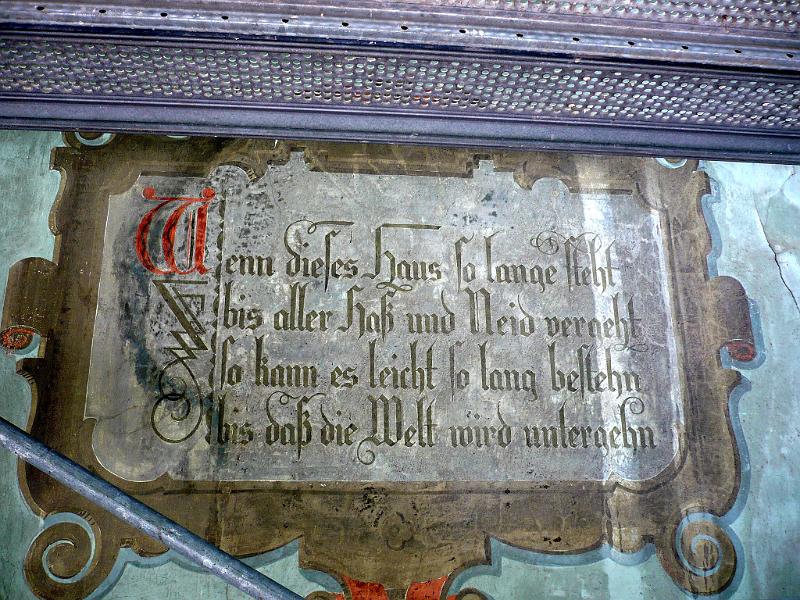 Wenn dieses Haus so lange steht
bis aller Haß und Neid vergeht
so kann es leicht so lang bestehn
bis daß die Welt wird untergehn